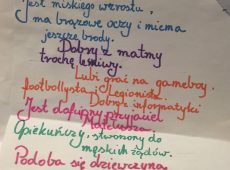 Jest niskiego wzrostu,
ma brązowe oczy i niema
jeszcze brody.
Dobry z matmy
trochę leniwy.
Lubi grać na gameboy.
footbollysta i Legionista
Dobry z informatyki
Jest dafujny przyjaciel
Mateusza
Opiekuńczy, stworzony do
męskich rządów.
Podoba się dziewczyną